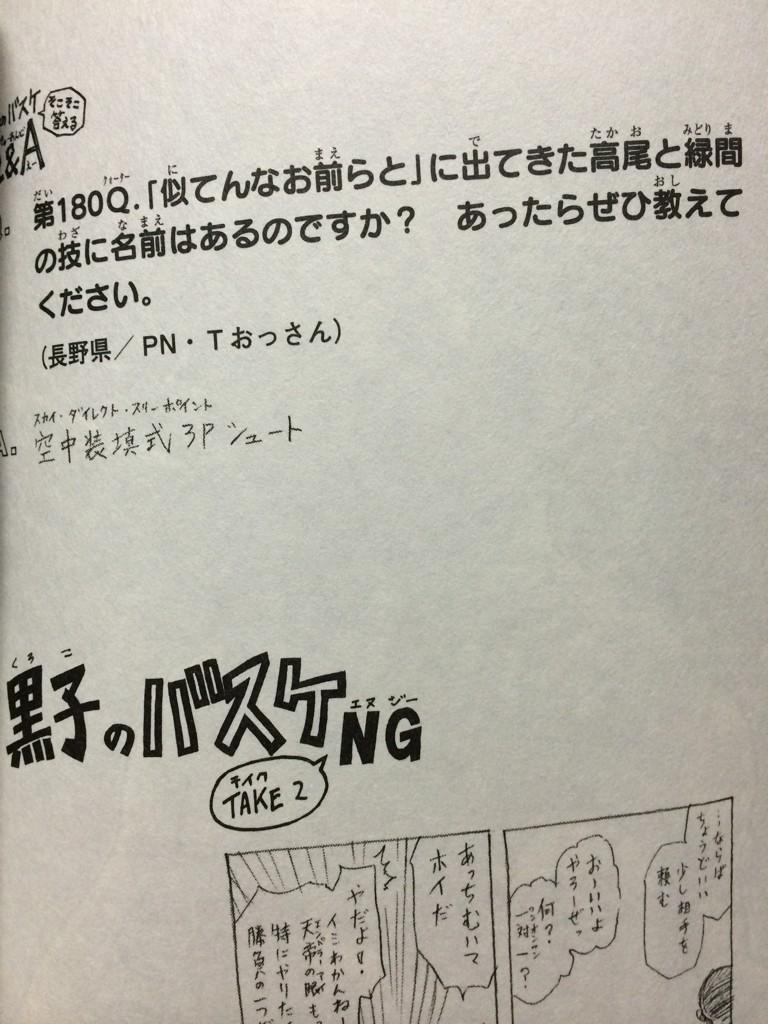 のバスケ
そこそこ
答える
Q&A
第180Q.「似てんなお前らと」に出てきた高尾と緑間
の技に名前はあるのですか？　あったらぜひ教えて
ください。
(長野県／PN・Tおっさん)
スカイ・ダイレクト・スリーポイント
A. 空中装填式3Pシュート
黒子のバスケNG
テイク
TAKE 2
…ならば
ちょうどいい
少し相手を
頼む
おーいいよ
やろーぜっ
何？
一対一？
あっちむいて
ホイだ
やだよ!!
イミわかんねー
天帝の眼も
特にやりたく
勝負の一つだ